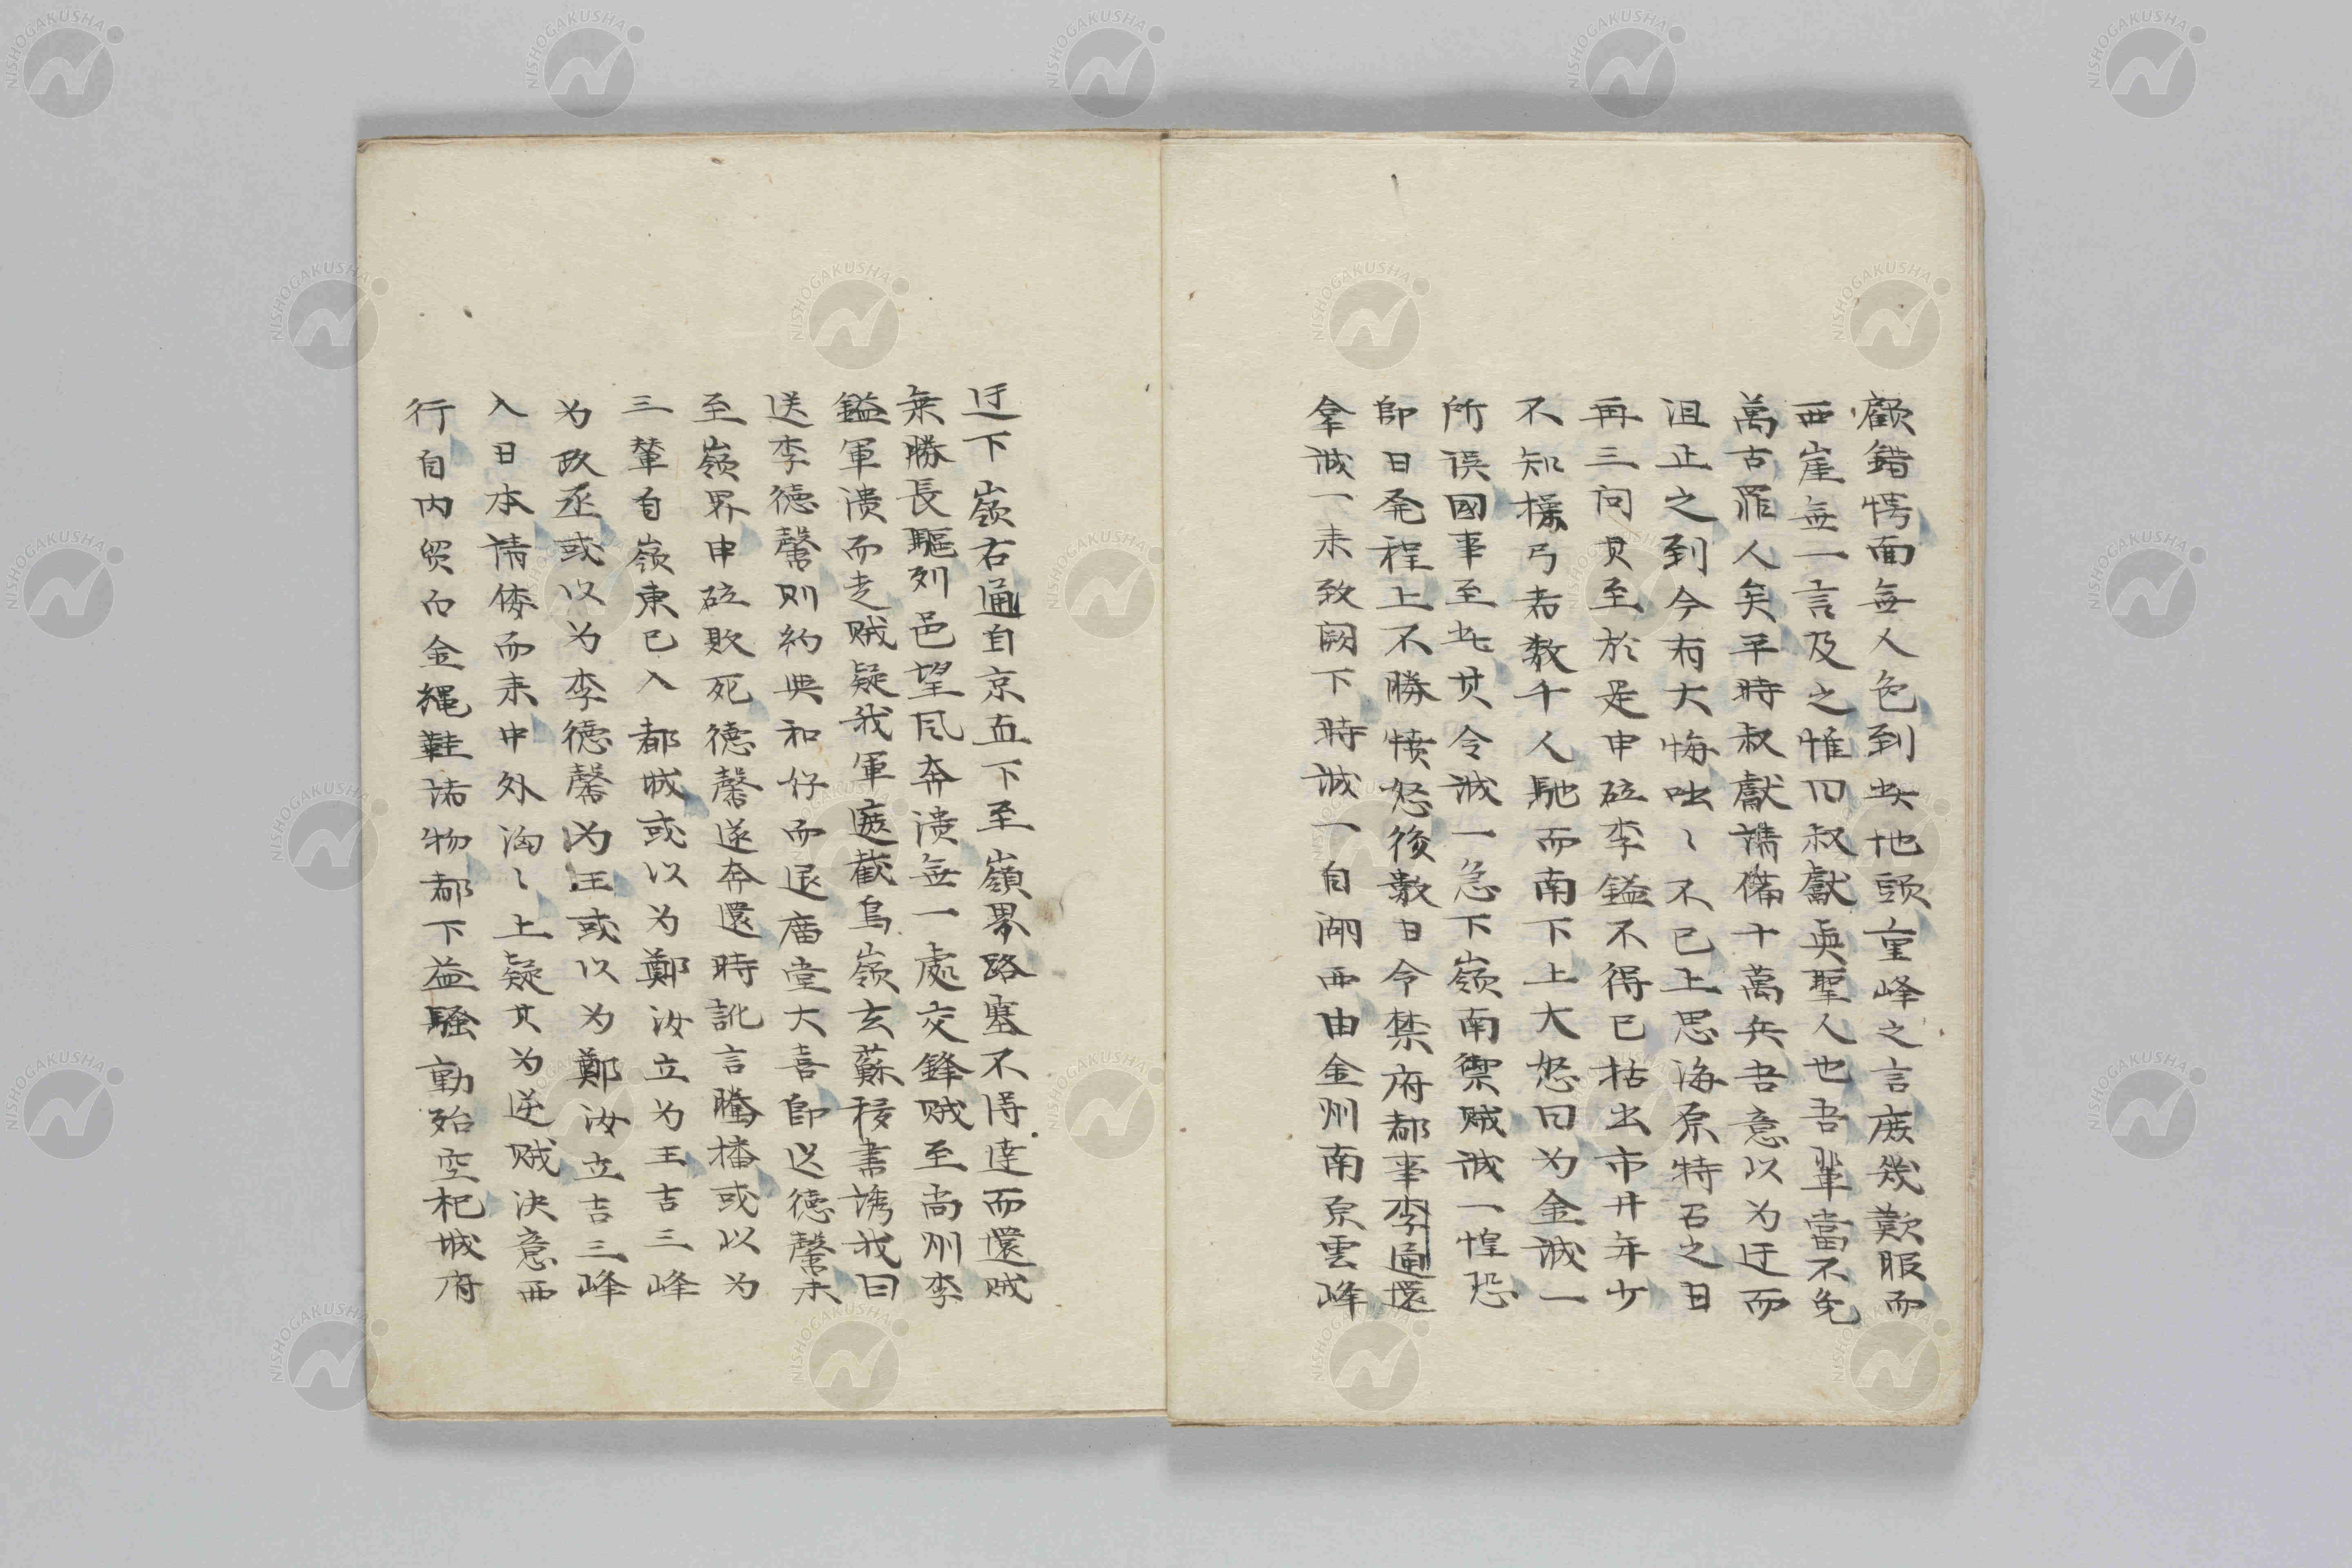 顧錯愕面無人色到此地頭重峰之言庶幾歎服而
西崖無一言及之惟曰叔獻真聖人也吾輩當不免
萬古罪人矣平時叔獻請備十萬兵吾意以为迂而
沮止之到今有大悔咄〻不已上思海原特石之日
再三问其至於是申砬李鎰不得已括出市井年少
不知操弓者数千人馳而南下上大怒曰为金誠一
所误國事至此其令誠一急下嶺南禦贼誠一惶恐
即日発程上不勝憤怒後數日令禁府都事李通還
拿誠一来致闕下時誠一自湖西由金州南原雲峰
迂下嶺右通自京直下至嶺界路塞不得達而還贼
乗勝長驅列邑望风奔潰無一處交鋒贼至尚州李
鎰軍潰而走贼疑我軍遮截鳥嶺玄蘇移書誘我曰
送李德馨则約與和好而退廟堂大喜即以德馨来
至嶺界申砬敗死德馨遂奔還時訛言騰播或以为
三輩自嶺東已入都城或以为鄭汝立为王吉三峰
为政丞或以为李德馨为王或以为鄭汝立吉三峰
入日本请倭而来中外洶〻上疑其为逆贼决意西
行自内贸而金繩鞋诸物都下益騷動殆空杞城府